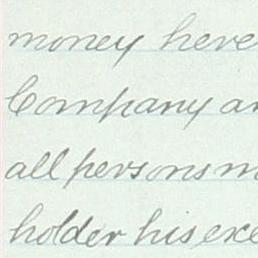 money here
Company an
all persons m
holder his exe